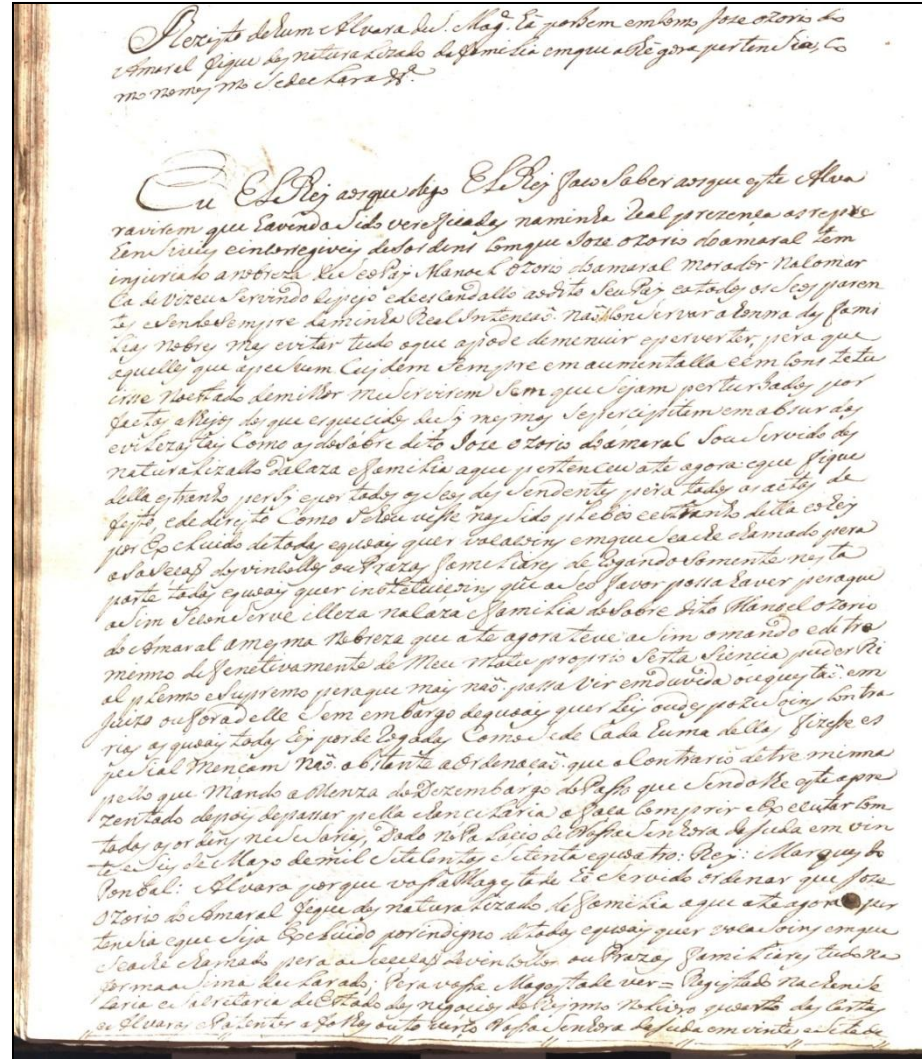 Rezisto de hum Alvara de S. Mag.e Eè por bem em homo Joze ozorio do
Amaral fique desnaturalizado da familia em que athe gora pertencia, Co
mo no mesmo se declara &.a
Eu El Rej aos que digo El Rej faco Saber aos que este Alva
ra virem que havendo Sido vereficadas na minha Real prezença as repre
Henciveis e incorregiveis desordens com que Joze ozorio do amaral tem
injuriado a nobreza de seo Pay Manoel ozorio do amaral morador na Comar
Ca de Vizeu Servindo de pejo e de escandallo ao dito Seu Pay e a todos os Seos paren
tes e Sendo Sempre da minha Real Intencaõ não Conservar a honra das fami
lias nobres mas evitar tudo o que a pode demenuir e perverter, pera que
aquelles que a pesuem Cuidem Sempre em aumentalla e em Constetu
irse no estado de milhor me Servirem Sem que Sejam perturbados por
factos alheyos dos que esquecidos de Sy mesmos Se percipitem em absurdos
Como os do Sobre dito Joze ozorio do amaral Sou Servido des
naturalizallo da Caza e familia a que pertenceu ate agora e que fique
della estranho por Sy e por todos os Seos desCendentes pera todos os actos de
feito, e de direito Como Se houvesse nascido plebeo e estranho della e o hej
por Excluido de todas e quais quer vocaçoins em que Seache chamado pera
a SoSecaõ dos vinCullos ou Prazos familiares derogando Somente nesta
parte todas e quais quer instetuicoins que a Seo favor possa haver pera que
a Sim Se Conserve illeza na Caza e familia do Sobre dito Manoel ozorio
do Amaral a mesma Nobreza que ate agora teve a Sim o mando e detre
mino defenetivamente de Meu motu proprio Serta Siencia puder Re
al pleno e Supremo pera que mais não possa vir em duvida ou questaõ em
Juizo ou fora delle Sem embargo de quais quer Leis ou despoziSoins Contra
rias as quais todas hey por derogadas Como Se de Cada huma dellas fizesse es
pecial Mencam Não obstante a ordenaçaõ que o Contrario detremina
pello que Mando a Menza do Dezembargo do Paço que Sendolhe este apre
zentado depois de passar pella chancelaria o faca Comprir e Executar Com
todas as ordens neCeSarias, Dado no Palacio de Nossa Senhora da Juda em vin
te e Seis de Mayo de mil e Setecentos e Setenta e quoatro: Rey: Marques do
Ponbal: Alvara porque vossa Magestade he Servido ordenar que Joze
Ozorio do Amaral fique desnaturalizado da familia a que ate agora per
tenSia e que Seja Excluido por indigno de todas e quais quer vocaSoins em que
Seache chamado pera a SuCeSaõ de vinCollos ou Prazos familiares tudo na
forma aSima declarado; Pera vossa Magestade ver = Registado na chance
laria e Secretaria de Estado dos negocios do Reyno no Livro quoarto das Cartas
e Alvaras e Patentes a folhas outo verso Nossa Senhora da Juda em vinte e Sete de